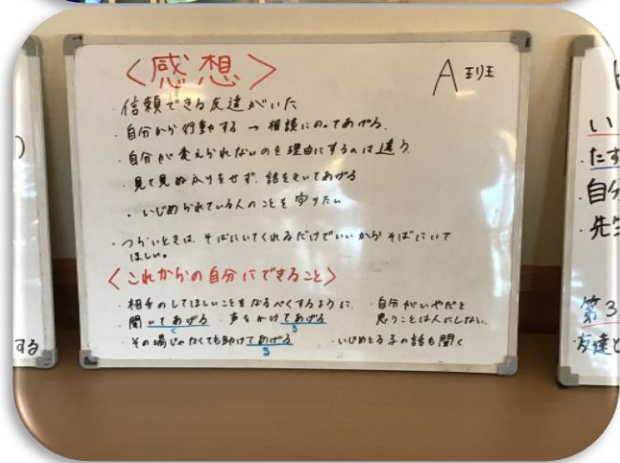 る
する
<感想>
A班
・信頼できる友達がいた
・自分から行動する → 相談にのってあげる.
・自分が変えられないのを理由にするのは違う.
・見て見ぬふりをせず、話をきいてあげる
・いじめられている人のことを守りたい
・つらいときは、そばにいてくれるだけでいいからそばにいて
ほしい。
<これからの自分にできること>
・相手のしてほしいことをなるべくするように.
・自分がいやだと
思うことは人にしない.
・聞いてあげる ・声をかけてあげる
く
る
・その場じゃなくても助けてあげる
る
・いじめとる子の話も聞く
い
・たす
・自分
・先生
第3
・友達と